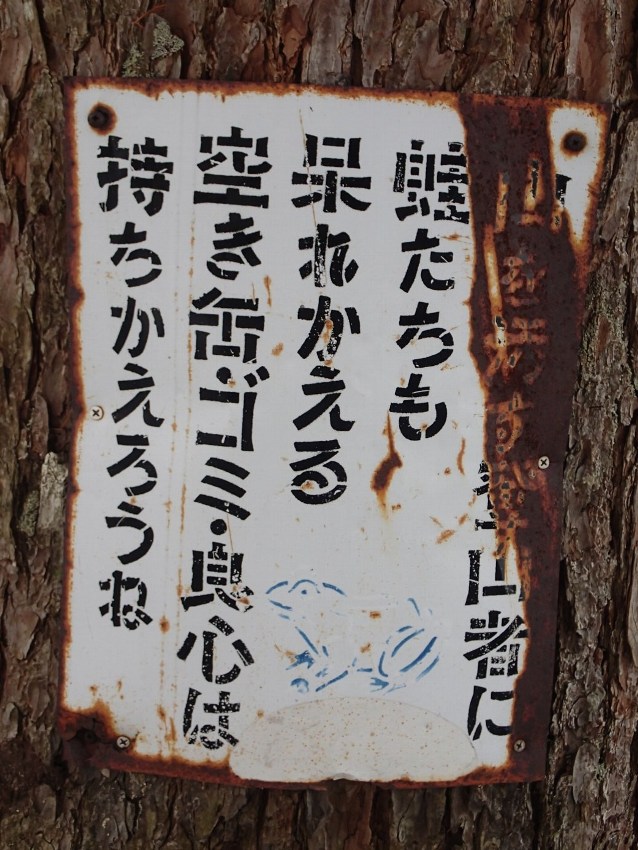 登山者に
蛙たちも
呆れかえる
空き缶・ゴミ・良心は
持ちかえろうね